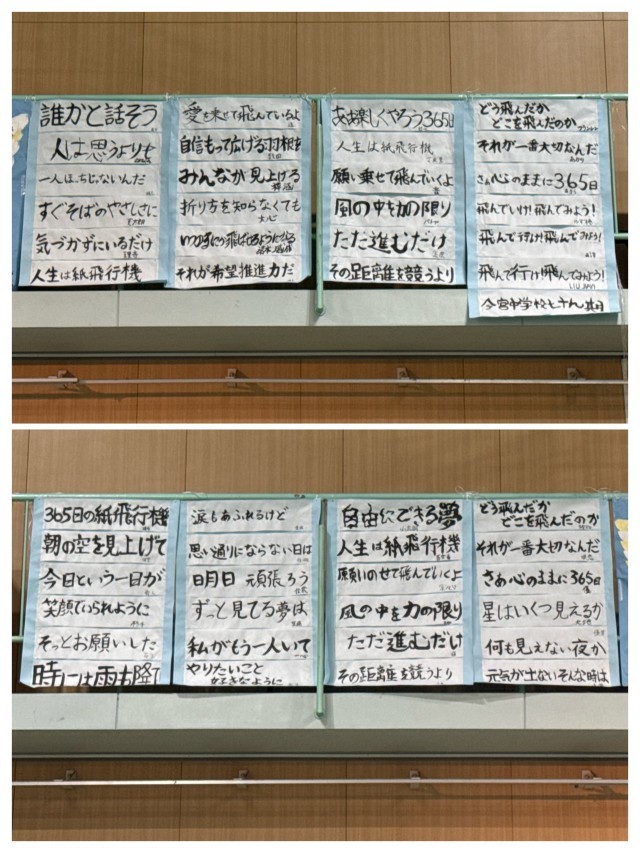 誰かと話そう
人は思うよりも
一人ぼっちじゃないんだ
すぐそばのやさしさに
気づかずにいるだけ
人生は紙飛行機
愛を乗せて飛んでいるよ
自信もって広げる羽根を
みんなが見上げる
折り方を知らなくても
いつのまにか飛ばせるようになる
それが希望推進力だ
ああ楽しくやろう365日
人生は紙飛行機
願い乗せて飛んでいくよ
風の中を力の限り
ただ進むだけ
その距離を競うより
どう飛んだか
どこを飛んだのか
それが一番大切なんだ
さあ心のままに365日
飛んでいけ!飛んでみよう!
飛んで行け!飛んでみよう!
飛んで行け!飛んでみよう!
今宮中学校
365日の紙飛行機
朝の空を見上げて
今日という一日が
笑顔でいられように
そっとお願いした
時には雨も降って
涙もあふれるけど
思い通りにならない日は
明日 頑張ろう
ずっと見てる夢は
私がもう一人いて
やりたいこと
好きなように
自由にできる夢
人生は紙飛行機
願いのせて飛んでいくよ
風の中を力の限り
ただ進むだけ
その距離を競うより
どう飛んだか
どこを飛んだのか
それが一番大切なんだ
さあ心のままに365日
星はいくつ見えるか
何も見えない夜か
元気が出ないそんな時は